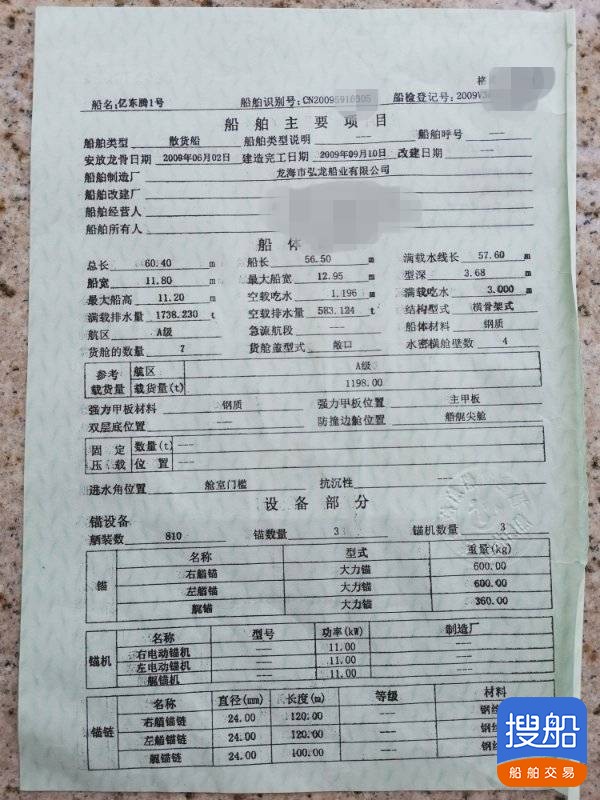 船名:亿东腾1号 船舶识别号:CN20095918305 船检登记号:2009V
船舶主要项目
船舶类型 散货船 船舶类型说明 --- 船舶呼号 ---
安放龙骨日期 2009年06月02日 建造完工日期 2009年09月10日 改建日期 ---
船舶制造厂 龙海市弘龙船业有限公司
船舶改建厂
船舶经营人
船舶所有人
船体
总长 60.40 m 船长 56.50 m 满载水线长 57.60 m
船宽 11.80 m 最大船宽 12.95 m 型深 3.68 m
最大船高 11.20 m 空载吃水 1.196 m 满载吃水 3.000 m
满载排水量 1738.230 t 空载排水量 583.124 t 结构型式 横骨架式
航区 A级 急流航段 --- 船体材料 钢质
货舱的数量 7 货舱盖型式 敞口 水密横舱壁数 4
参考 航区 A级
载货量 载货量(t) 1198.00
强力甲板材料 钢质 强力甲板位置 主甲板
双层底位置 --- 防撞边舱位置 船艉尖舱
固定 数量(t) ---
压载 位置 ---
进水角位置 舱室门槛 抗沉性 ---
设备部分
锚设备
舾装数 810 锚数量 3 锚机数量 3
锚 名称 型式 重量(kg)
右艏锚 大力锚 600.00
左艏锚 大力锚 600.00
艉锚 大力锚 360.00
锚机 名称 型号 功率(kW) 制造厂
右电动锚机 --- 11.00 ---
左电动锚机 --- 11.00 ---
艉锚机 --- 11.00 ---
锚链 名称 直径(mm) 长度(m) 等级 材料
右艏锚链 24.00 120.00 --- 钢
左艏锚链 24.00 120.00 --- 钢
艉锚链 24.00 100.00 --- 钢
搜船
船舶交易